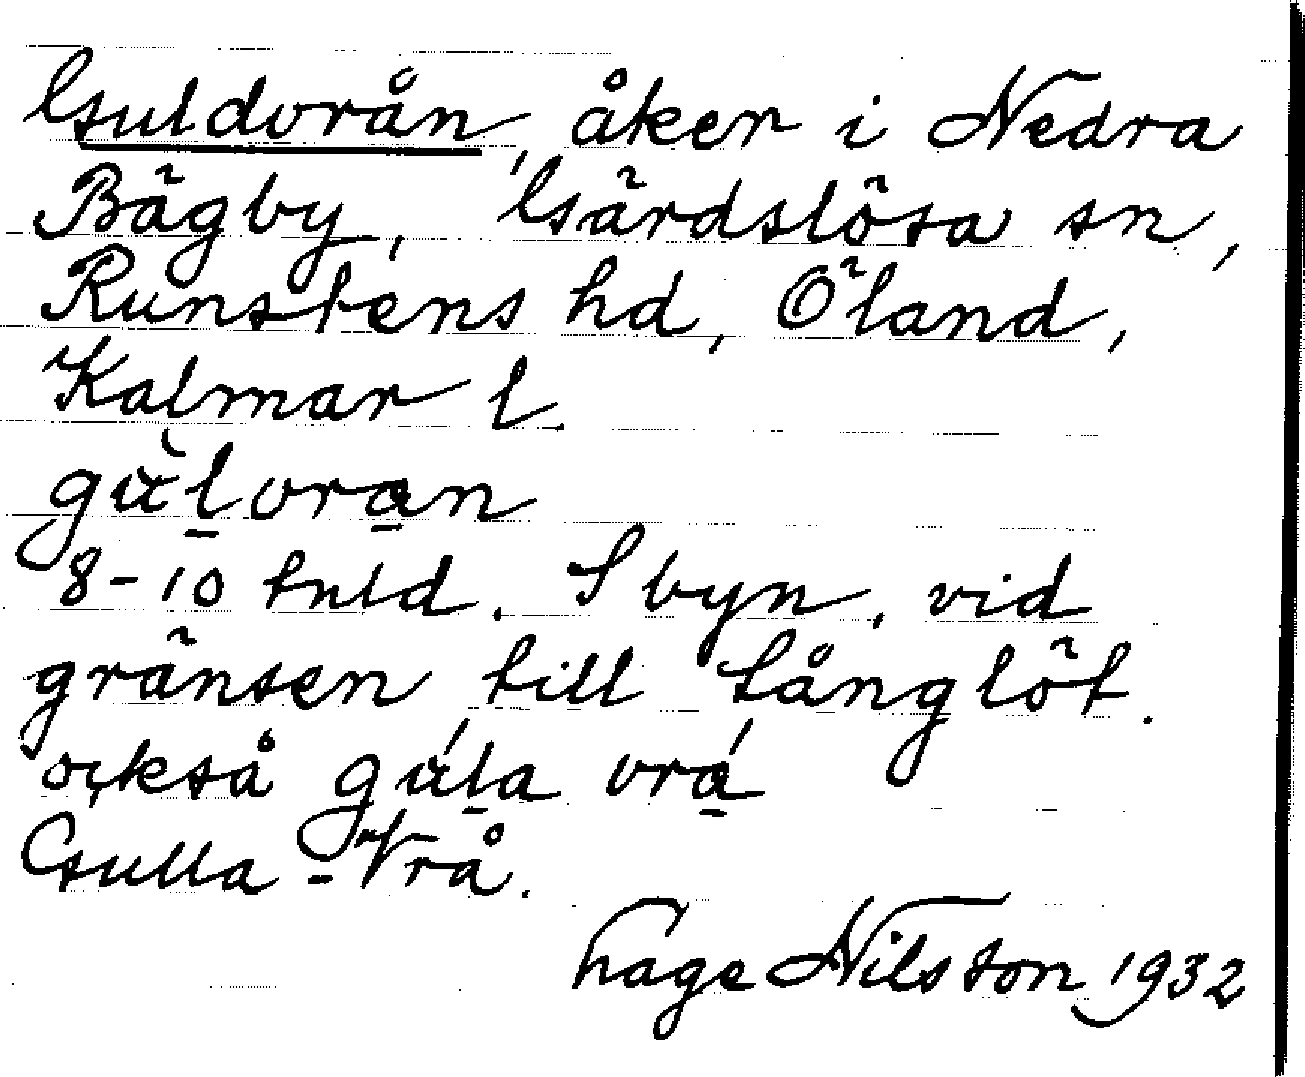 Guldvrån, åker i Nedra
Bägby, Gärdslösa sn,
Runstens hd, Öland,
Kalmar l.
gùlvran
8-10 tnld. I byn, vid
gränsen till Långlöt.
också gúla vrá
Gulla-Vrå.
Hage Nilsson 1932